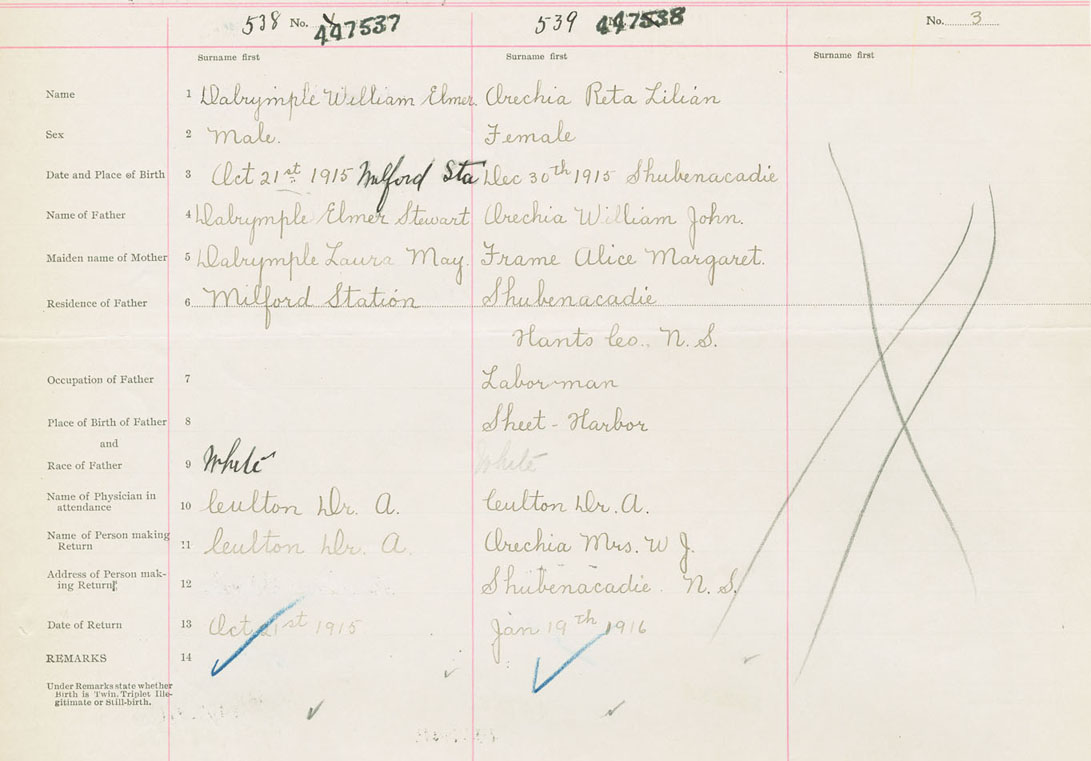 538 No. 447537 539 447538 No. 3
Surname first Surname first Surname first
Name 1 Dalrymple William Elmer Orechia Reta Lilian
Sex 2 Male. Female
Date and Place of Birth 3 Oct 21st 1915 Milford Sta Dec 30th 1915 Shubenacadie
Name of Father 4 Dalrymple Elmer Stewart Orechia William John.
Maiden name of Mother 5 Dalrymple Laura May. Frame Alice Margaret.
Residence of Father 6 Milford Station Shubenacadie
Hants Co., N.S.
Occupation of Father 7 Labor-man
Place of Birth of Father 8 Sheet-Harbor
and
Race of Father 9 White White
Name of Physician in
attendance 10 Culton Dr. A. Culton Dr. A.
Name of Person making
Return 11 Culton Dr. A. Orechia Mrs. W J.
Address of Person mak-
ing Return 12 Shubenacadie N.S.
Date of Return 13 Oct 21st 1915 Jan 19th 1916
REMARKS 14
Under Remarks state whether
Birth is Twin, Triplet Ille-
gitimate or Still-birth.